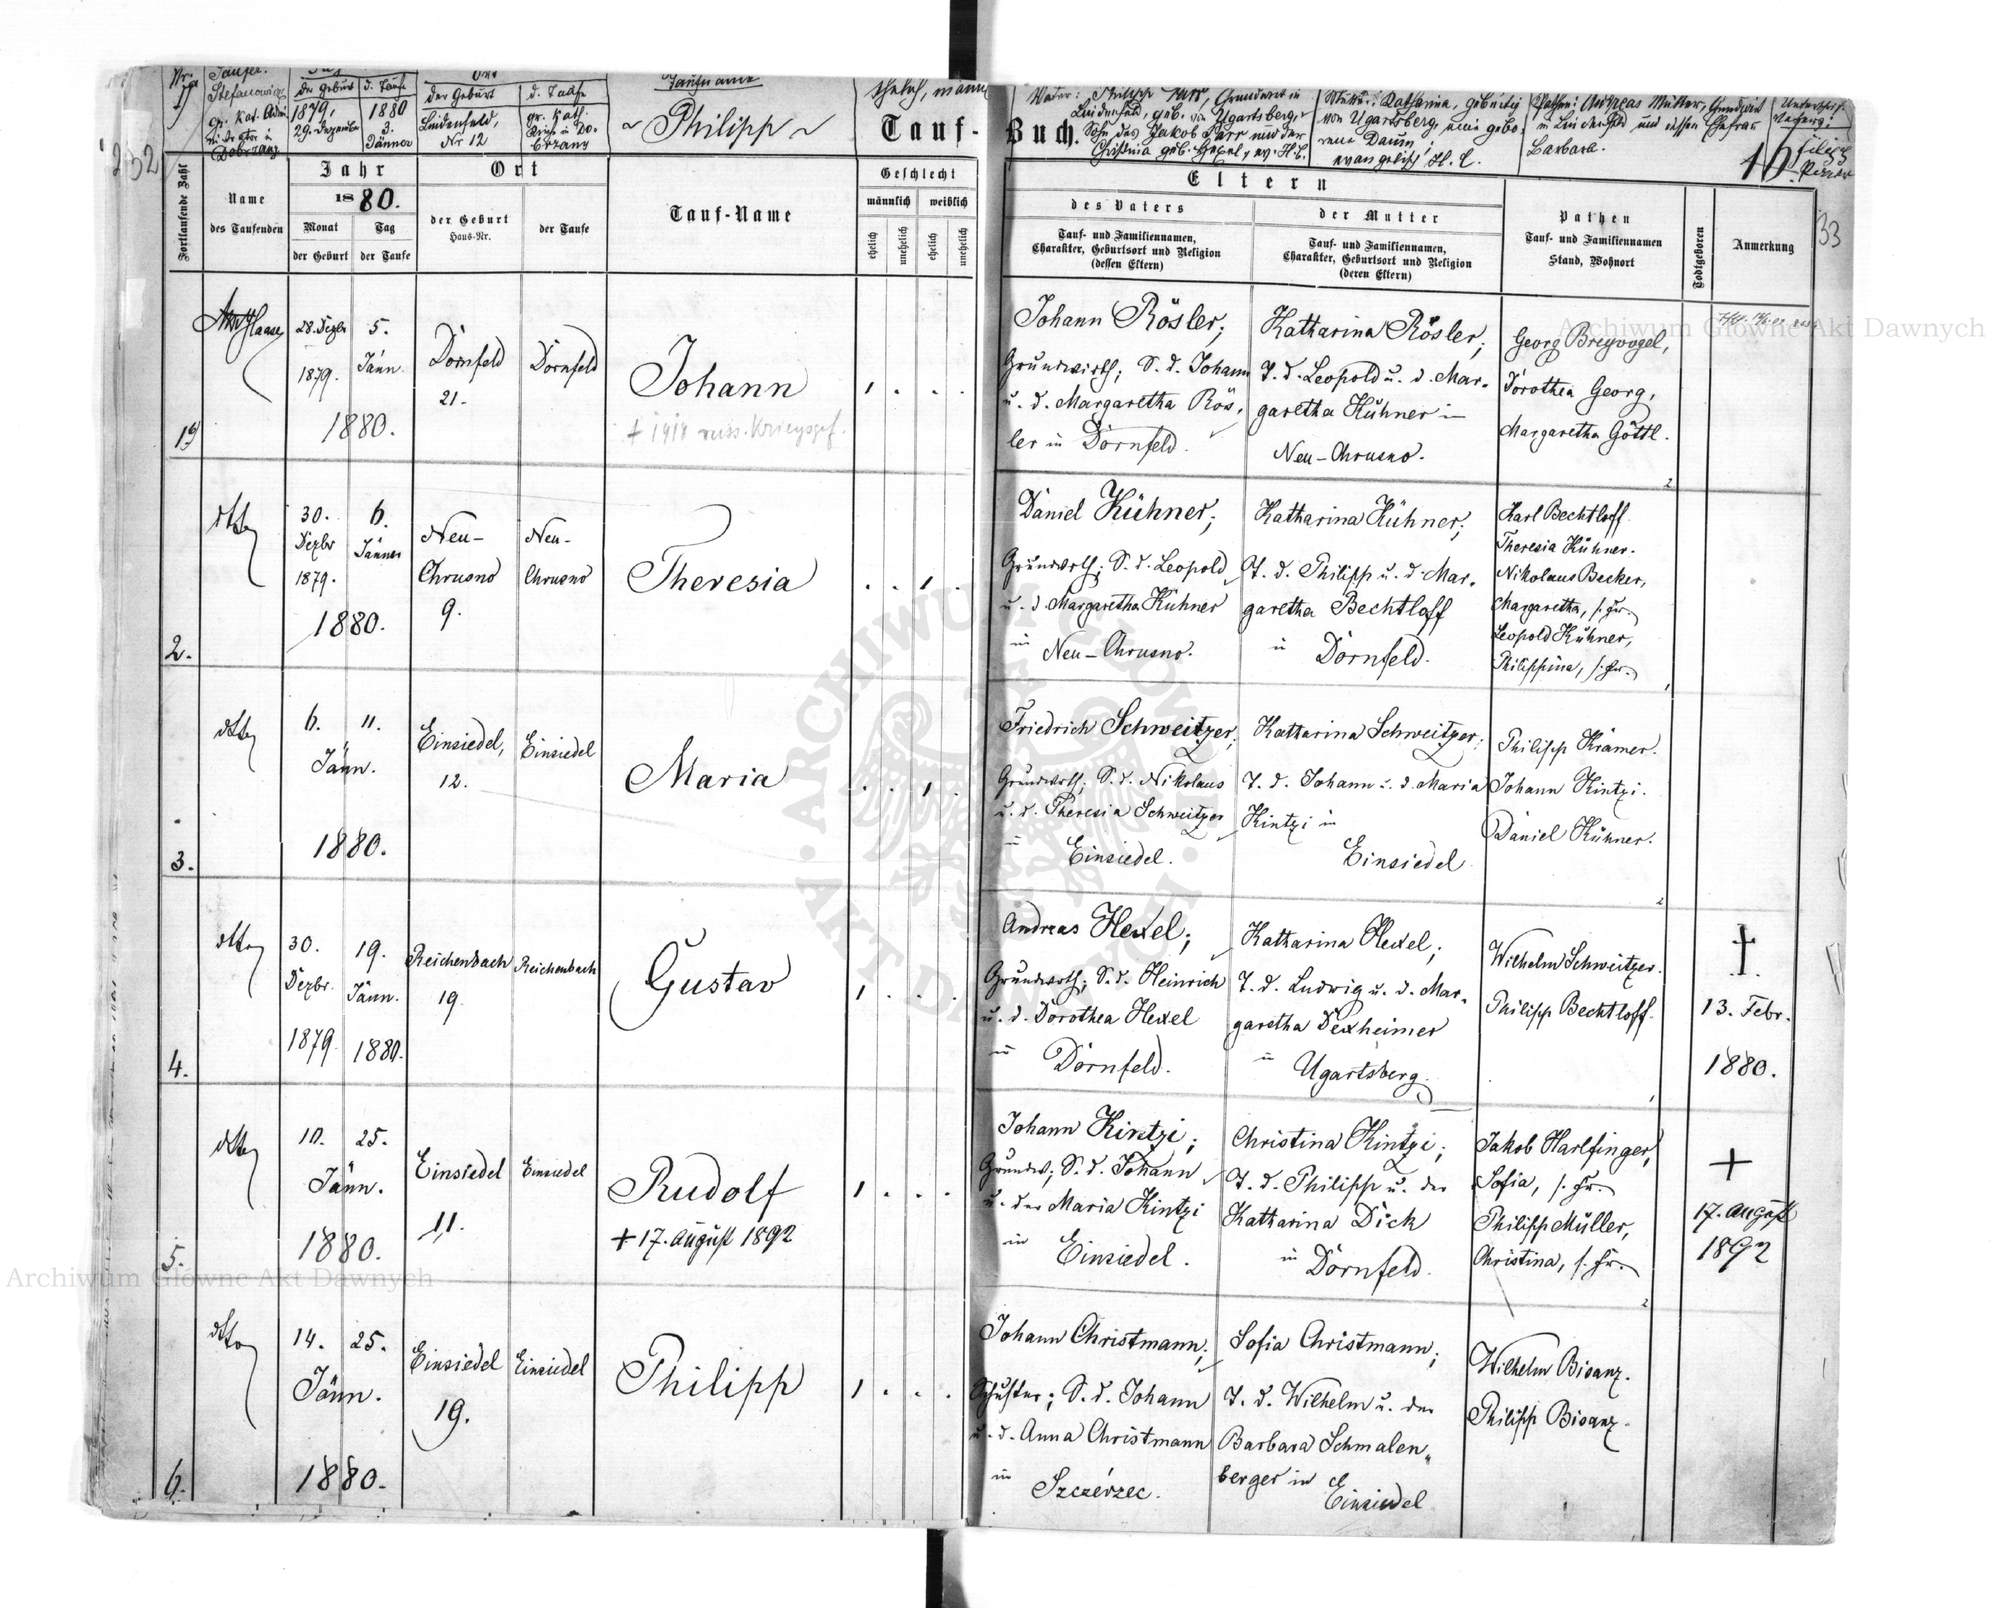 Taufname
~ Philipp ~
Tauf-Buch.
232
33
Nr.
Täufer:
Stefanowicz
gr. kat. Admi
nistrator in
Dobrzany
der Geburt
1879,
29. Dezember
d. Taufe
1880
3.
Jänner
Ort
der Geburt
Lindenfeld,
Nr 12
d. Taufe
gr. kat.
Kirche in Do-
brzany
ehelich, männl
Vater: Philipp Parr, Grundwirt in
Lindenfeld, geb. von Ugartsberg,
Sohn des Jakob Parr und der
Christina geb. Hexel, ev. H. C.
Mutter: Katharina, gebürtig
von Ugartsberg, eine gebo-
rene Daum;
evangelisch H. C.
Pathen: Andreas Müller, Grundwirt
in Lindenfeld und dessen Ehefrau
Barbara.
Fortlaufende Zahl
Name
des Taufenden
Jahr
1880.
Monat
der Geburt
Tag
der Taufe
Ort
der Geburt
Haus-Nr.
der Taufe
Tauf-Name
Geschlecht
männlich
weiblich
ehelich
unehelich
ehelich
unehelich
Eltern
des Vaters
Tauf- und Familiennamen,
Charakter, Geburtsort und Religion
(dessen Eltern)
der Mutter
Tauf- und Familiennamen,
Charakter, Geburtsort und Religion
(deren Eltern)
Pathen
Tauf- und Familiennamen
Stand, Wohnort
Todtgeboren
Anmerkung
Haase
28. Dezbr
1879.
5.
Jänn.
1880.
Dornfeld
21.
Dornfeld
Johann
+ 1918 russ. Kriegsgef.
Johann Rösler;
Grundwirth; S. d. Johann
u. d. Margaretha Rös-
ler in Dornfeld.
Katharina Rösler;
T. d. Leopold u. d. Mar-
garetha Kühner in
Neu-Chrusno.
Georg Breyvogel,
Dorothea Georg,
Margaretha Göttl.
2.
dtto
30.
Dezbr
1879.
6.
Jänner
1880.
Neu-
Chrusno
9.
Neu-
Chrusno
Theresia
Daniel Kühner;
Grundwrth; S. d. Leopold
u. d. Margaretha Kühner
in Neu-Chrusno.
Katharina Kühner;
T. d. Philipp u. d. Mar-
garetha Bechtloff
in Dornfeld.
Karl Bechtloff
Theresia Kühner.
Nikolaus Becker,
Margaretha, s. Fr.
Leopold Kühner,
Philippina, s. Fr.
3.
dtto
6.
11.
Jänn.
1880.
Einsiedel,
12.
Einsiedel
Maria
Friedrich Schweitzer;
Grundwrth; S. d. Nikolaus
u. d. Theresia Schweitzer
in Einsiedel.
Katharina Schweitzer;
T. d. Johann u. d. Maria
Kintzi in
Einsiedel
Philipp Krämer.
Johann Kintzi.
Daniel Kühner.
4.
dtto
30.
Dezbr.
1879
19.
Jänn.
1880.
Reichenbach
19.
Reichenbach
Gustav
Andreas Hexel;
Grundwrth; S. d. Heinrich
u. d. Dorothea Hexel
in Dornfeld.
Katharina Hexel;
T. d. Ludwig u. d. Mar-
garetha Dexheimer
in Ugartsberg.
Wilhelm Schweitzer.
Philipp Bechtloff.
†
13. Febr.
1880.
5.
dtto
10.
25.
Jänn.
1880.
Einsiedel
11.
Einsiedel
Rudolf
+ 17. August 1892
Johann Kintzi;
Grundw; S. d. Johann
u. der Maria Kintzi
in Einsiedel.
Christina Kintzi;
T. d. Philipp u. der
Katharina Dick
in Dornfeld.
Jakob Harlfinger,
Sofia, s. Fr.
Philipp Müller,
Christina, s. Fr.
+
17. August
1892
6.
dtto
14.
25.
Jänn.
1880.
Einsiedel
19.
Einsiedel
Philipp
Johann Christmann;
Schuster; S. d. Johann
u. d. Anna Christmann
in Szczérzec.
Sofia Christmann;
T. d. Wilhelm u. der
Barbara Schmalen-
berger in Einsiedel
Wilhelm Bisanz.
Philipp Bisanz.
Archiwum Główne Akt Dawnych
Archiwum Główne Akt Dawnych
ARCHIWUM GŁÓWNE AKT DAWNYCH